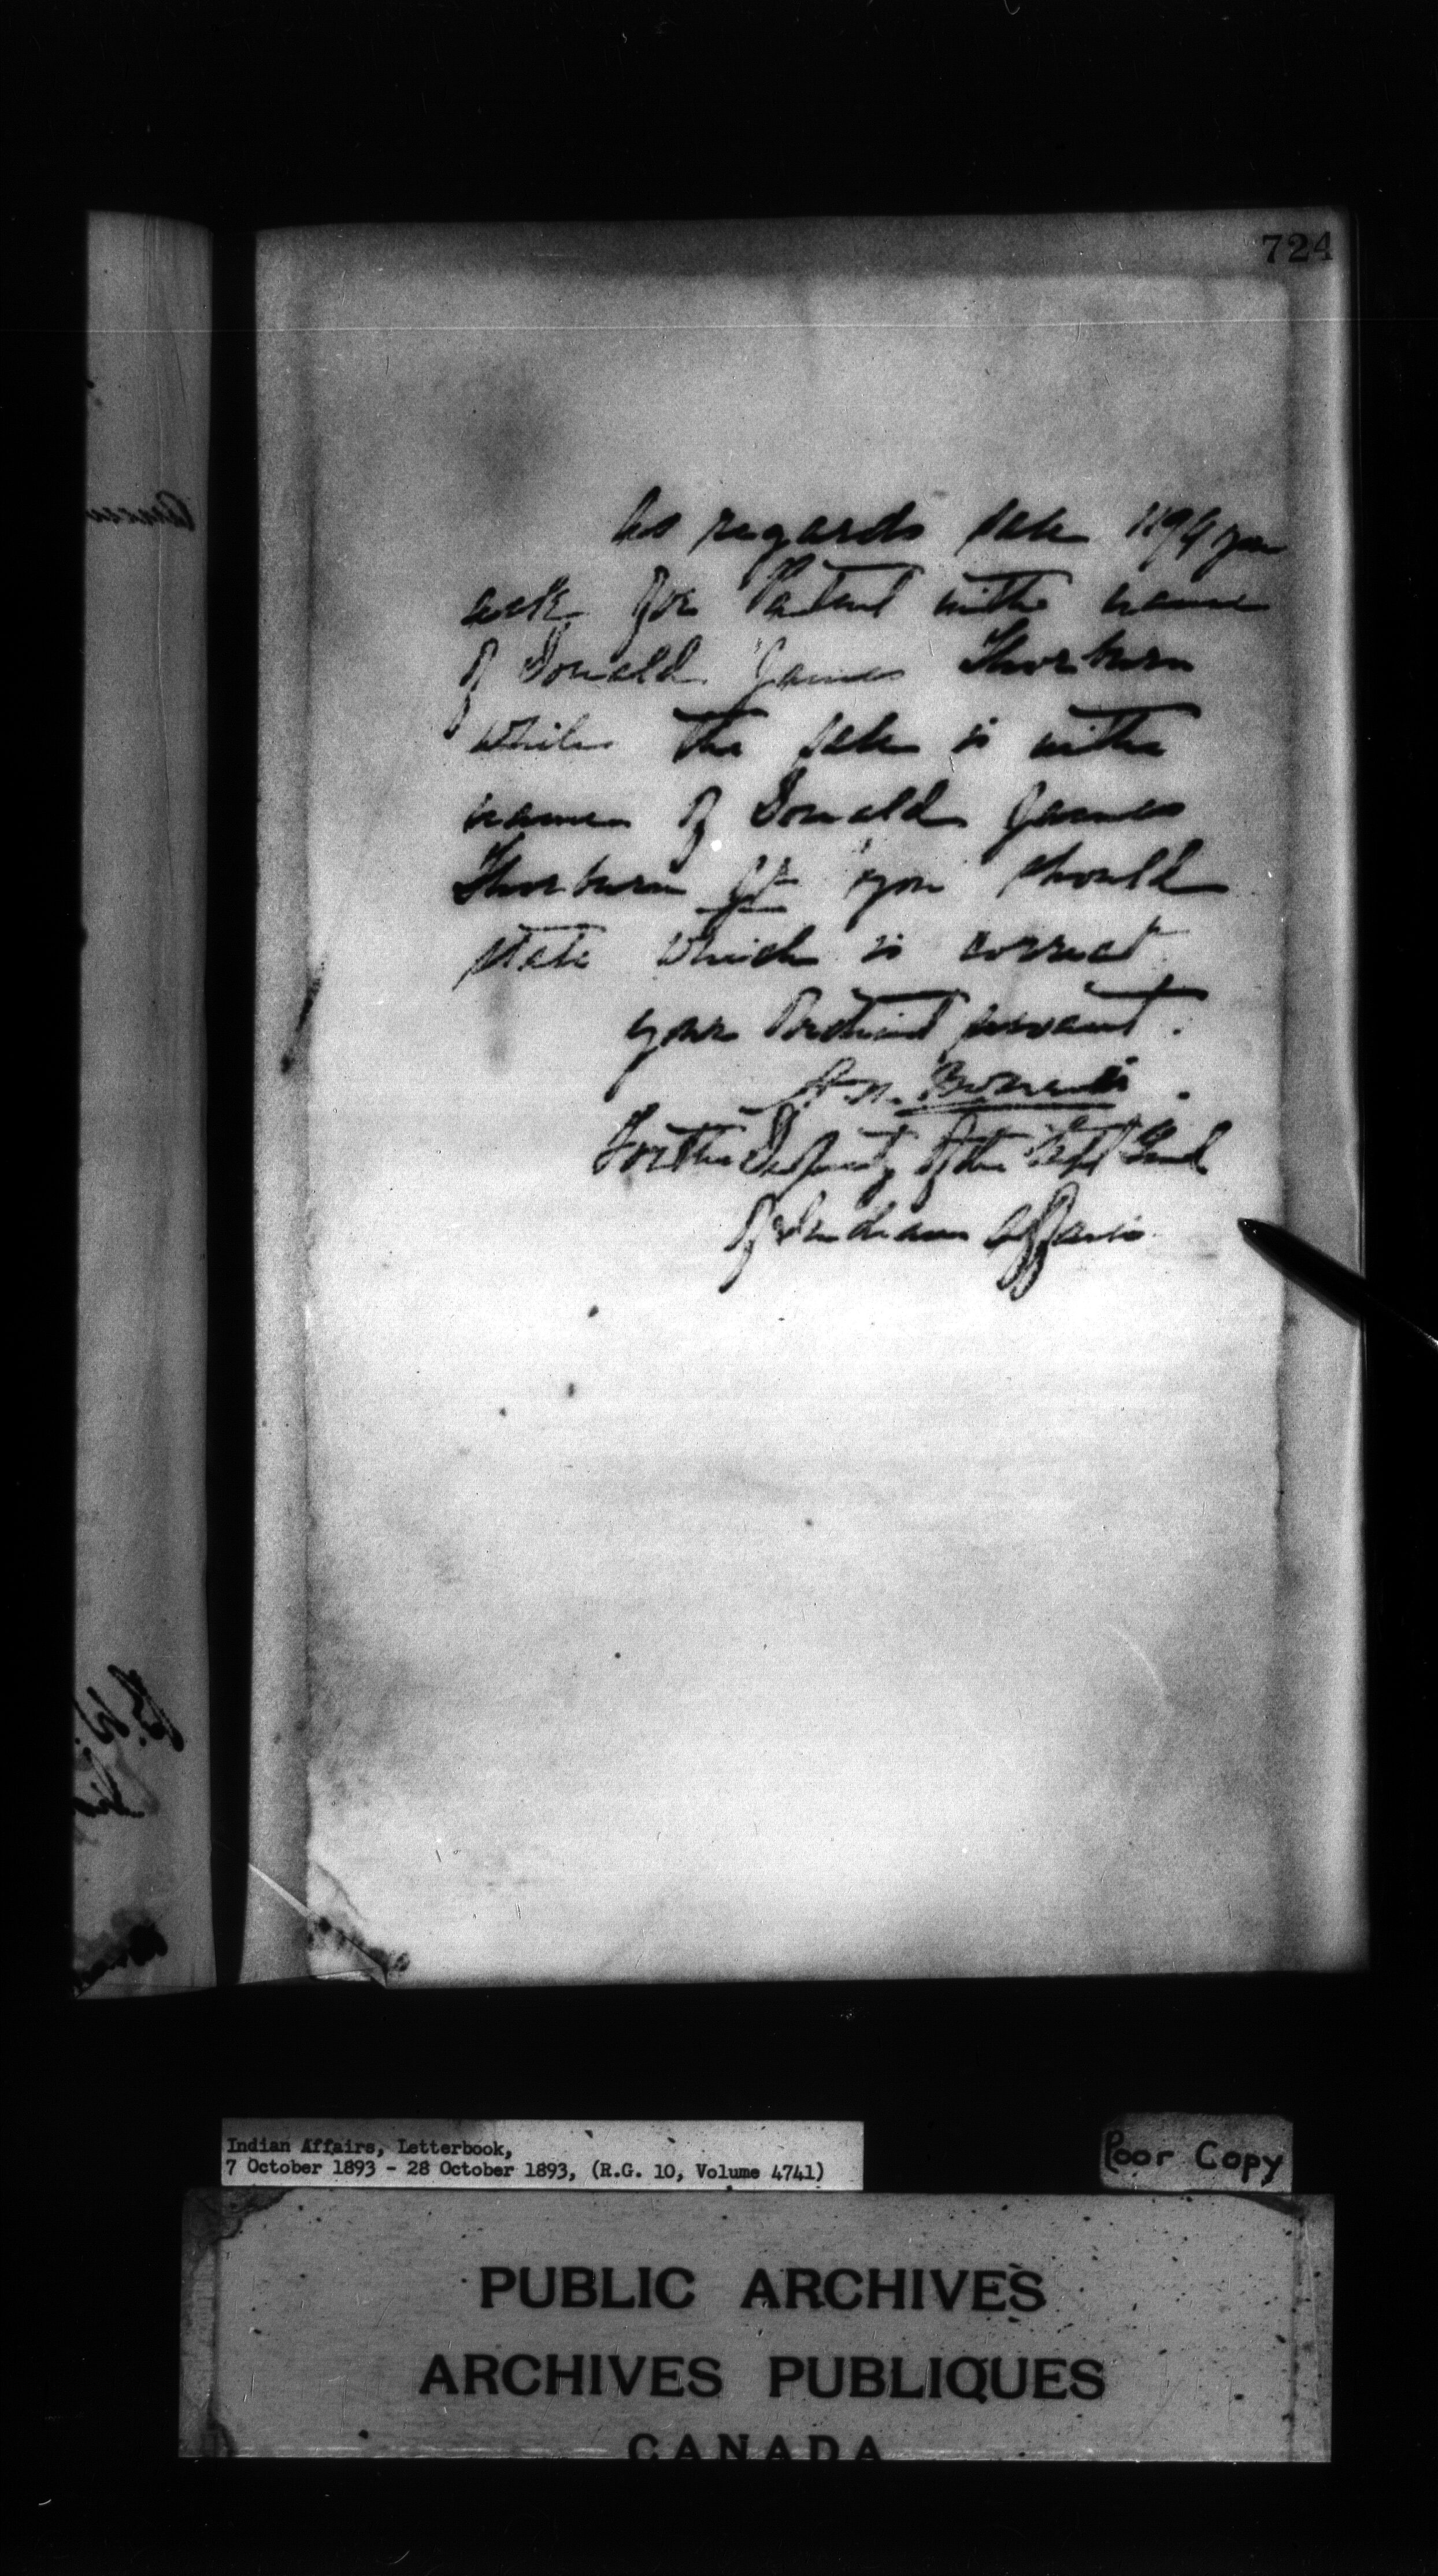 724
As regards sale 1194 you
ask for Patent in the name
of Donald James Thorburn
while the sale is in the
name of Donald James
Thorburn Jr you should
state which is correct
your obedient servant.
For the Deputy of the Supt Genl
of Indian Affairs
Indian Affairs, Letterbook,
7 October 1893 - 28 October 1893, (R.G. 10, Volume 4741)
Poor Copy
PUBLIC ARCHIVES
ARCHIVES PUBLIQUES
CANADA